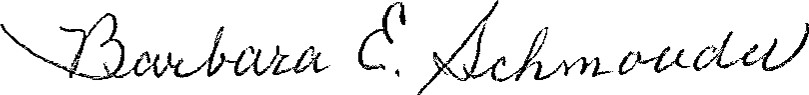 Barbara E. Schmouder